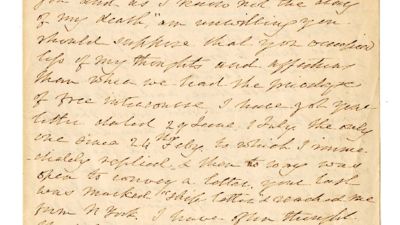 you and as I know not the day
of my death" am unwilling you
should suppose that you occupy
less of my thoughts and affections
than when we had the privilege
of free intercourse, I have got your
letter dated 29 June, 1 July, the only
one since 24th Feby. to which I imme
diately replied, & then to way was
open to convey a letter, your last
was marked "Ship letter" & reached me
from N York. I have often thought